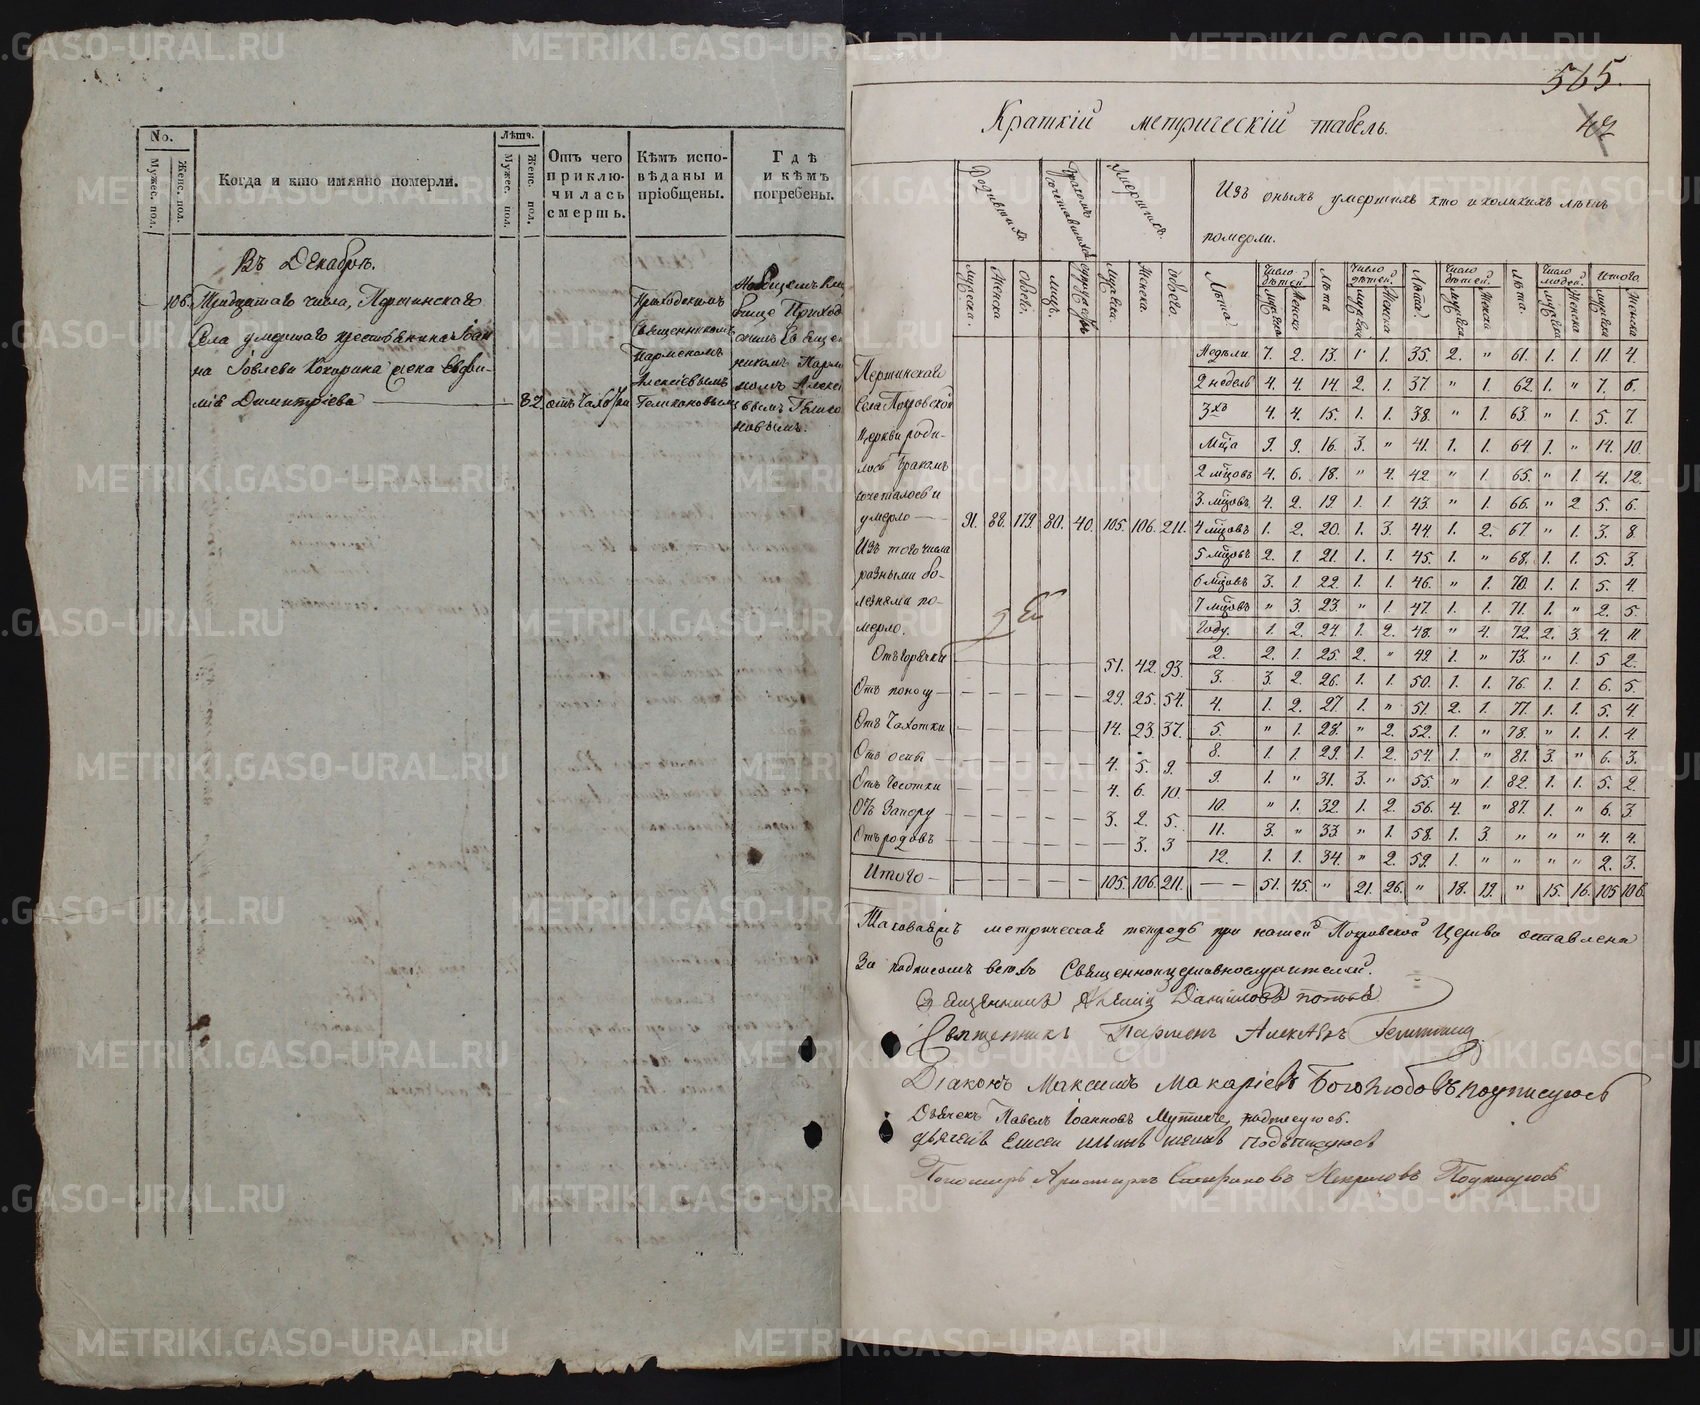 No.
Мужес. пол.
Женс. пол.
Когда и кто имянно померли.
Лѣтъ.
Мужес. пол.
Женс. пол.
Отъ чего
приклю-
чилась
смерть.
Кѣмъ испо-
вѣданы и
пріобщены.
Гдѣ
и кѣмъ
погребены.
Въ Декабрѣ.
106. Тридцатаго числа,
Села умершаго крестьянина Іоан
на Іовлева Кокарина жена Евфи-
мія Димитріева 82 отъ Чахотки
Приходскимъ
Священникомъ
Парменомъ
Алексіевымъ
565.
42
Краткій метрическій табель.
Родившихъ
Умершихъ
Изъ оныхъ умершихъ кто и коликихъ лѣтъ
померли.
Мужеска. Женска Обоего. Мужеска. Женска. Обоего. Лѣта Лѣта Лѣта Лѣта. Итого
Села Покровской
Церкви роди-
лось бракомъ
сочеталось и
умерло 91. 88. 179. 80. 40 105. 106. 211.
Изъ того числа
разными бо-
лезнями по-
мерло.
Отъ горячки 51. 42. 93.
Отъ поносу 29. 25. 54.
Отъ Чахотки 14. 23. 37.
Отъ оспы 4. 5. 9.
Отъ Чесотки 4. 6. 10.
Отъ Запору 3. 2. 5.
Отъ родовъ 3. 3
Итого 105. 106. 211. 51. 45. " 21. 26. " 18. 19. " 15. 16. 105 106
Недѣли 7. 2. 13. 1. 1. 35. 2. " 61. 1. 1. 11. 4.
2 недель 4. 4. 14. 2. 1. 37. " 1. 62. 1. " 7. 6.
3хъ 4. 4. 15. 1. 1. 38. " 1. 63 " 1. 5. 7.
Мца 9. 9. 16. 3. " 41. 1. 1. 64. 1. " 14. 10.
2 мцовъ 4. 6. 18. " 4. 42. " 1. 65. " 1. 4. 12.
3. мцовъ 4. 2. 19. 1. 1. 43. " 1. 66. " 2 5. 6.
4 мцовъ 1. 2. 20. 1. 3. 44. 1. 2. 67. " 1. 3. 8.
5 мцовъ 2. 1. 21. 1. 1. 45. 1. " 68. 1. 1. 5. 3.
6 мцовъ 3. 1. 22. 1. 1. 46. " 1. 70. 1. 1. 5. 4.
7 мцовъ " 3. 23. " 1. 47. 1. 1. 71. 1. " 2. 5
Году. 1. 2. 24. 1. 2. 48. " 4. 72. 2. 3. 4. 11
2. 2. 1. 25. 2. " 49. 1. " 73. " 1. 5 2.
3. 3. 2 26. 1. 1. 50. 1. 1. 76. 1. 1. 6. 5.
4. 1. 2. 27. 1. " 51 2. 1. 77. 1. 1. 5. 4.
5. " 1. 28. " 2. 52. 1. " 78. " 1. 1. 4
8. 1. 1. 29. 1. 2. 54. 1. " 81. 3. " 6. 3.
9. 1. " 31. 3. " 55. " 1. 82. 1. 1. 5. 2
10. " 1. 32. 1. 2. 56. 4. " 87. 1. " 6. 3
11. 3. " 33 " 1. 58. 1. 3. " " " 4. 4.
12. 1. 1. 34. " 2. 59. 1. " " " " 2. 3.
метрическая тетрадь при нашей Покровской Церкви оставлена
За подписомъ всѣхъ Священноицерковнослужителей.
Даніиловъ Поповъ
Священникъ Парменъ Алексѣевъ
Діаконъ Максимъ Макаріевъ Боголюбовъ подписуюсь
Дьячекъ Павелъ Іоанновъ подписуюсь.
Дьячекъ Елисей подписуюсь
Пономарь Некрасовъ Подписуюсь
METRIKI.GASO-URAL.RU